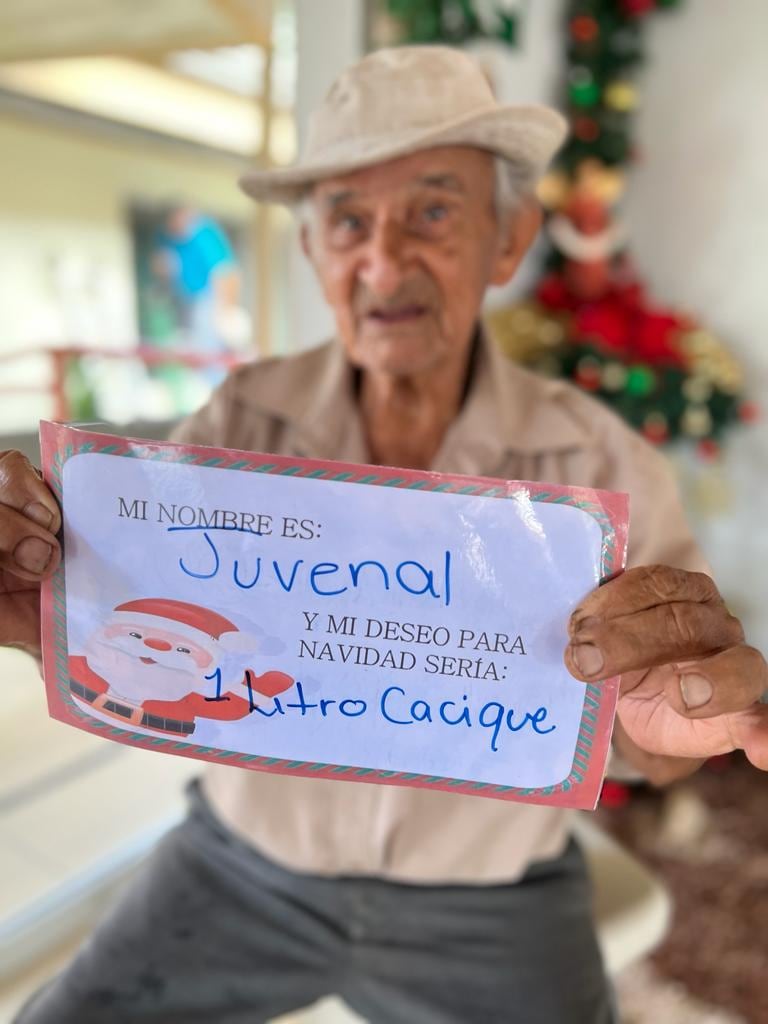 MI NOMBRE ES:
Juvenal
Y MI DESEO PARA
NAVIDAD SERÍA:
1 Litro Cacique